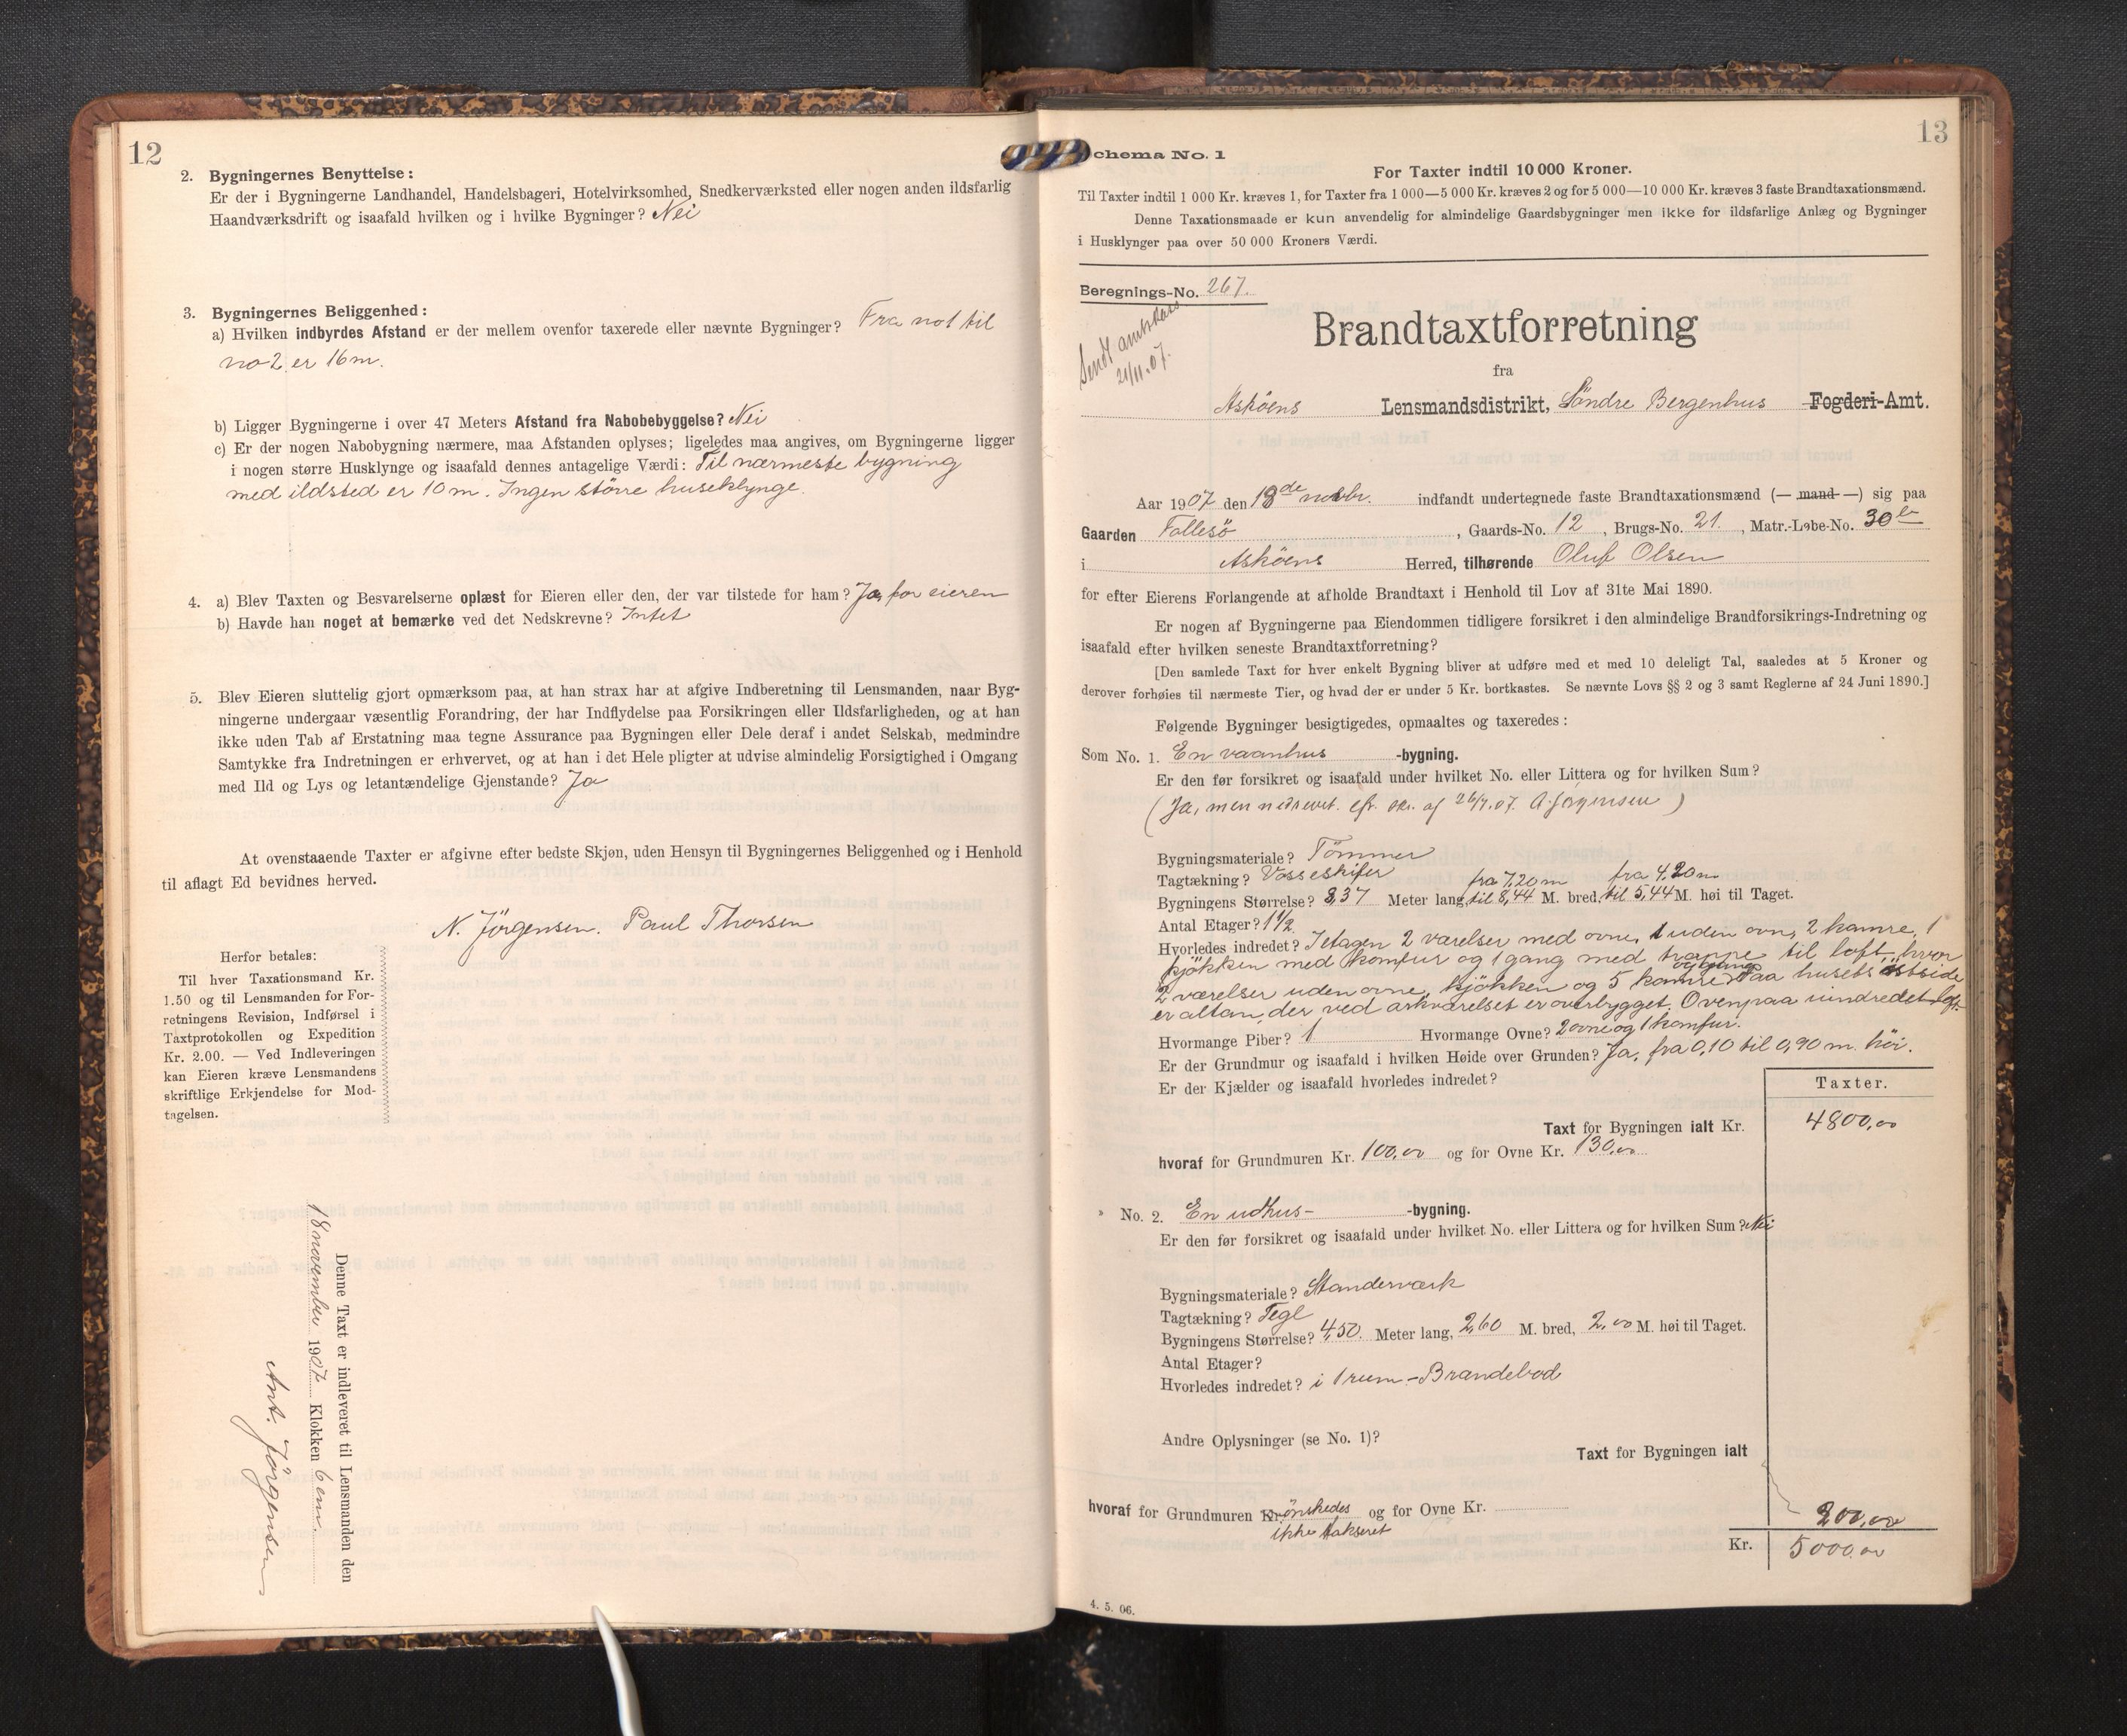 12
2. Bygningernes Benyttelse:
Er der i Bygningerne Landhandel, Handelsbageri, Hotelvirksomhed, Snedkerværksted eller nogen anden ildsfarlig
Haandværksdrift og isaafald hvilken og i hvilke Bygninger? Nei
3. Bygningernes Beliggenhed:
a) Hvilken indbyrdes Afstand er der mellem ovenfor taxerede eller nævnte Bygninger? Fra no 1 til
no 2 er 16 m.
b) Ligger Bygningerne i over 47 Meters Afstand fra Nabobebyggelse? Nei
c) Er der nogen Nabobygning nærmere, maa Afstanden oplyses; ligeledes maa angives, om Bygningerne ligger
i nogen større Husklynge og isaafald dennes antagelige Værdi: Til nærmeste bygning
med ildsted er 10 m. Ingen större huseklynge.
4. a) Blev Taxten og Besvarelserne oplæst for Eieren eller den, der var tilstede for ham? Ja, for eieren
b) Havde han noget at bemærke ved det Nedskrevne? Intet
5. Blev Eieren sluttelig gjort opmærksom paa, at han strax har at afgive Indberetning til Lensmanden, naar Byg-
ningerne undergaar væsentlig Forandring, der har Indflydelse paa Forsikringen eller Ildsfarligheden, og at han
ikke uden Tab af Erstatning maa tegne Assurance paa Bygningen eller Dele deraf i andet Selskab, medmindre
Samtykke fra Indretningen er erhvervet, og at han i det Hele pligter at udvise almindelig Forsigtighed i Omgang
med Ild og Lys og letantændelige Gjenstande? Ja
At ovenstaaende Taxter er afgivne efter bedste Skjøn, uden Hensyn til Bygningernes Beliggenhed og i Henhold
til aflagt Ed bevidnes herved.
N. Jörgensen. Paul Thorsen
Herfor betales:
Til hver Taxationsmand Kr.
1.50 og til Lensmanden for For-
retningens Revision, Indførsel i
Taxtprotokollen og Expedition
Kr. 2.00. — Ved Indleveringen
kan Eieren kræve Lensmandens
skriftlige Erkjendelse for Mod-
tagelsen.
Denne Taxt er indleveret til Lensmanden den
18 november 1907 Klokken 6 em.
Ant. Jörgensen
13
chema No. 1
For Taxter indtil 10 000 Kroner.
Til Taxter indtil 1 000 Kr. kræves 1, for Taxter fra 1 000—5 000 Kr. kræves 2 og for 5 000—10 000 Kr. kræves 3 faste Brandtaxationsmænd.
Denne Taxationsmaade er kun anvendelig for almindelige Gaardsbygninger men ikke for ildsfarlige Anlæg og Bygninger
i Husklynger paa over 50 000 Kroners Værdi.
Beregnings-No. 267.
Sendt amtskass
21/11.07.
Brandtaxtforretning
fra
Asköens Lensmandsdistrikt, Söndre Bergenhus Fogderi-Amt.
Aar 1907 den 18de novbr. indfandt undertegnede faste Brandtaxationsmænd (— mand —) sig paa
Gaarden Follesö, Gaards-No. 12, Brugs-No. 21, Matr.-Løbe-No. 30
i Asköens Herred, tilhørende Oluf Olsen
for efter Eierens Forlangende at afholde Brandtaxt i Henhold til Lov af 31te Mai 1890.
Er nogen af Bygningerne paa Eiendommen tidligere forsikret i den almindelige Brandforsikrings-Indretning og
isaafald efter hvilken seneste Brandtaxtforretning?
[Den samlede Taxt for hver enkelt Bygning bliver at udføre med et med 10 deleligt Tal, saaledes at 5 Kroner og
derover forhøies til nærmeste Tier, og hvad der er under 5 Kr. bortkastes. Se nævnte Lovs §§ 2 og 3 samt Reglerne af 24 Juni 1890.]
Følgende Bygninger besigtigedes, opmaaltes og taxeredes:
Som No. 1. En vaanhus -bygning.
Er den før forsikret og isaafald under hvilket No. eller Littera og for hvilken Sum?
(Ja, men nedrevet. efr. skr. af 26/7.07. A. Jörgensen)
Bygningsmateriale? Tömmer
Tagtækning? Vosseskifer fra 7,20 m fra 4,20 m
Bygningens Størrelse? 8,37 Meter lang, til 8,44 M. bred, til 5,44 M. høi til Taget.
Antal Etager? 1 1/2
Hvorledes indredet? I etagen 2 værelser med ovne, 1 uden ovn, 2 kamre, 1
kjökken med komfur og 1 gang med trappe til loft, hvor
2 værelser uden ovne, kjökken og 5 kamre og gang Paa husets östside
er altan, der ved arkværelset er overbygget. Ovenpaa uindredet loft.
Hvormange Piber? 1 Hvormange Ovne? 2 ovne og 1 komfur.
Er der Grundmur og isaafald i hvilken Høide over Grunden? Ja, fra 0,10 til 0,90 m. höi.
Er der Kjælder og isaafald hvorledes indredet?
Taxter.
Taxt for Bygningen ialt Kr. 4800,00
hvoraf for Grundmuren Kr. 100,00 og for Ovne Kr. 130,00
» No. 2. En udhus- -bygning.
Er den før forsikret og isaafald under hvilket No. eller Littera og for hvilken Sum? Nei
Bygningsmateriale? Standerværk
Tagtækning? Tegl
Bygningens Størrelse? 4,50. Meter lang, 2,60 M. bred, 2,00 M. høi til Taget.
Antal Etager?
Hvorledes indredet? i 1 rum - Brandebod
Andre Oplysninger (se No. 1)?
Taxt for Bygningen ialt
hvoraf for Grundmuren Kr. önskedes og for Ovne Kr. 200,00
ikke takseret
Kr. 5000,00
4. 5. 06.